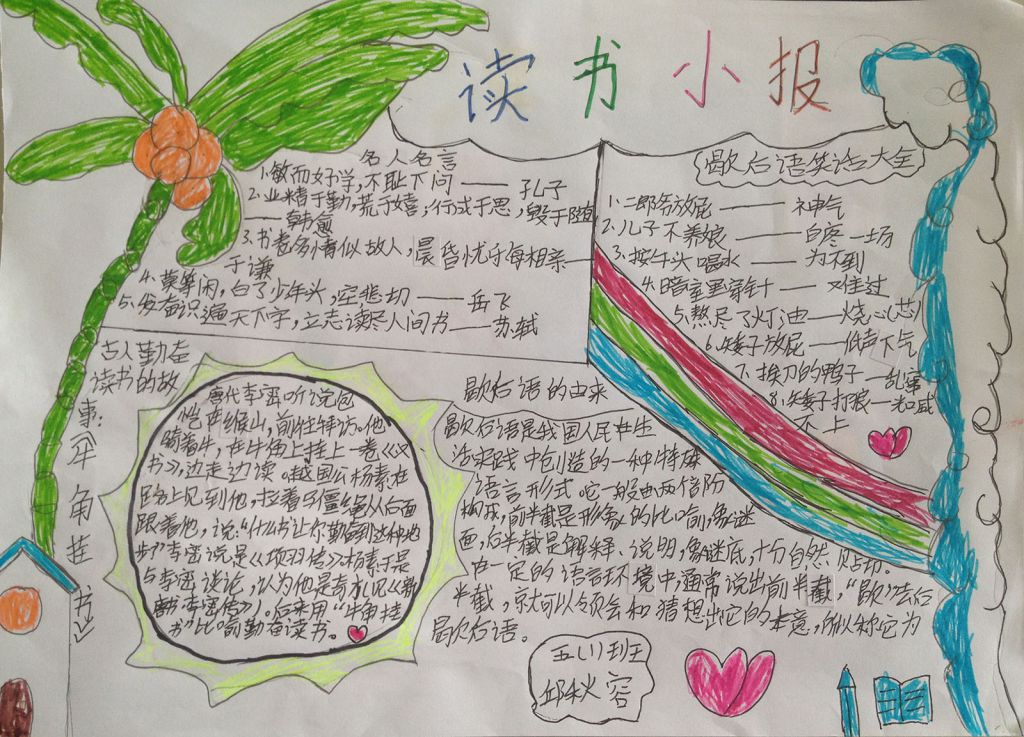 读书小报
名人名言
1.敏而好学,不耻下问——孔子
2.业精于勤,荒于嬉;行成于思,毁于随
——韩愈
3.书卷多情似故人,晨昏忧乐每相亲——
于谦
4.莫等闲,白了少年头,空悲切——岳飞
5.发奋识遍天下字,立志读尽人间书——苏轼
歇后语笑话大全
1.二郎爷放屁——神气
2.儿子不养娘——白疼一场
3.按牛头喝水——办不到
4.暗室里穿针——难过
5.熬尽了灯油——烧心(芯)
6.矮子放屁——低声下气
7.挨刀的鸭子—乱窜
8.矮子打狼—光喊
不上
古人勤奋
读书的故
事:《牛角挂书》
唐代李密听说包
恺在缑山,前往拜访。他
骑着牛,在牛角上挂上一卷《汉
书》,边走边读。越国公杨素在
路上见到他,拉着马缰绳从后面
跟着他,说:“什么书让你勤奋到这种地
步?”李密说是《项羽传》。杨素于是
与李密谈论,认为他是奇才(见《新
唐书·李密传》)。后来用“牛角挂
书”比喻勤奋读书。
歇后语的由来
歇后语是我国人民在生
活实践中创造的一种特殊
语言形式它一般由两个部
构成,前半截是形象的比喻,象谜
面,后半截是解释、说明,象谜底,十分自然贴切.
在一定的语言环境中通常说出前半截,“歇”去后
半截,就可以领会和猜想出它的本意,所以称它为
歇后语。
五(1)班
邱秋容